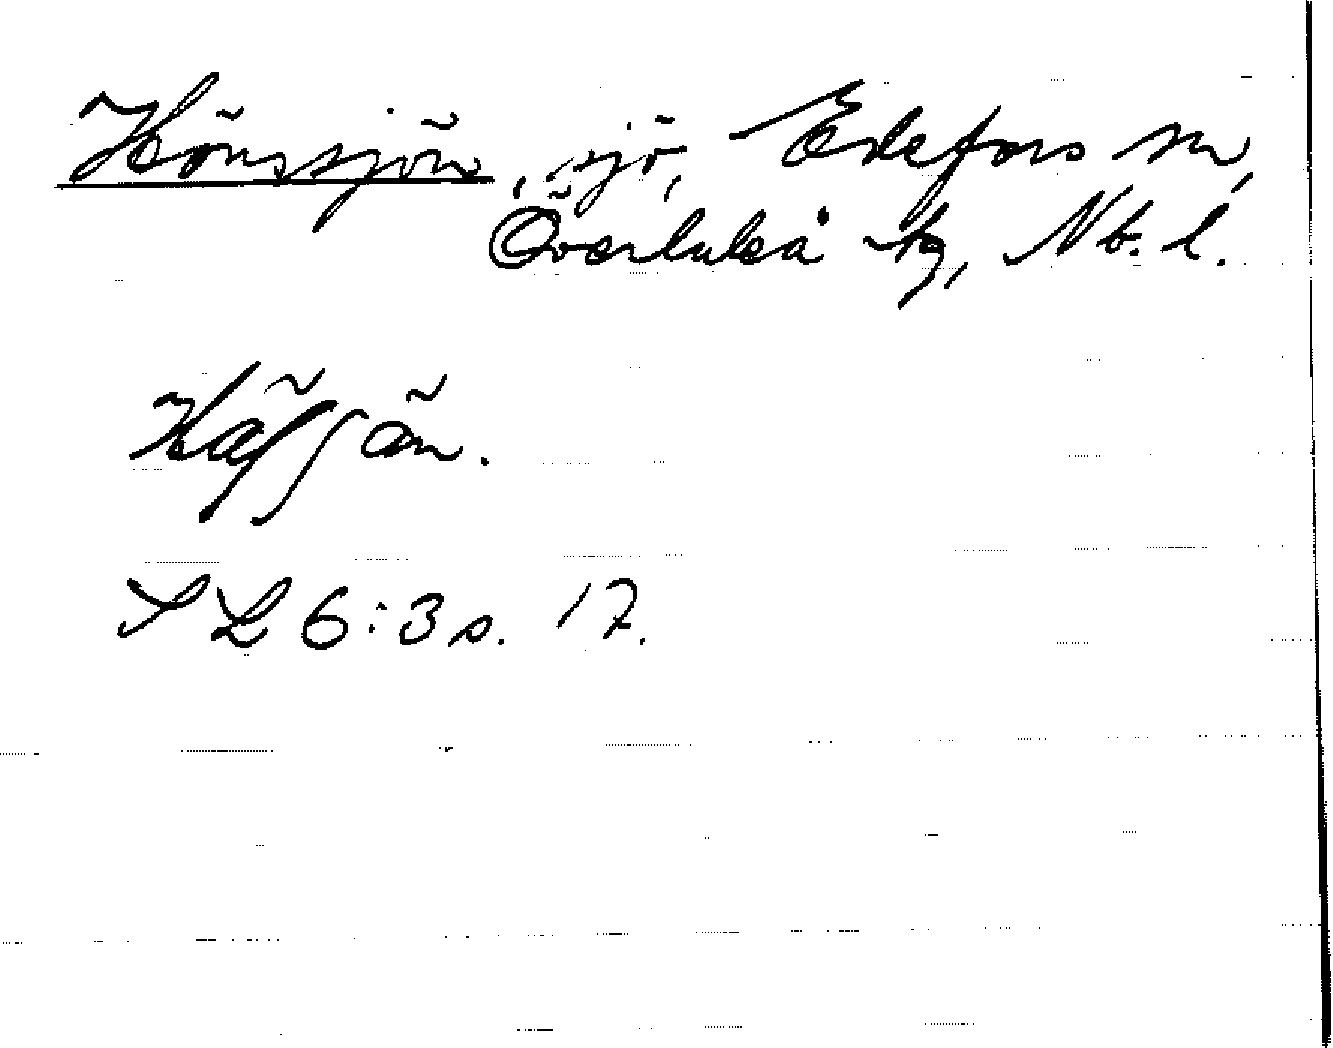 Hönssjön, sjö, Edefors sn,
Överluleå tg, Nb. l.
SL 6:3 s. 17.